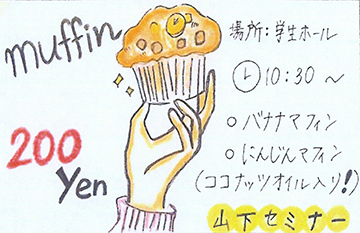 muffin
200
Yen
場所:学生ホール
10:30～
○バナナマフィン
○にんじんマフィン
(ココナッツオイル入り!)
山下セミナー